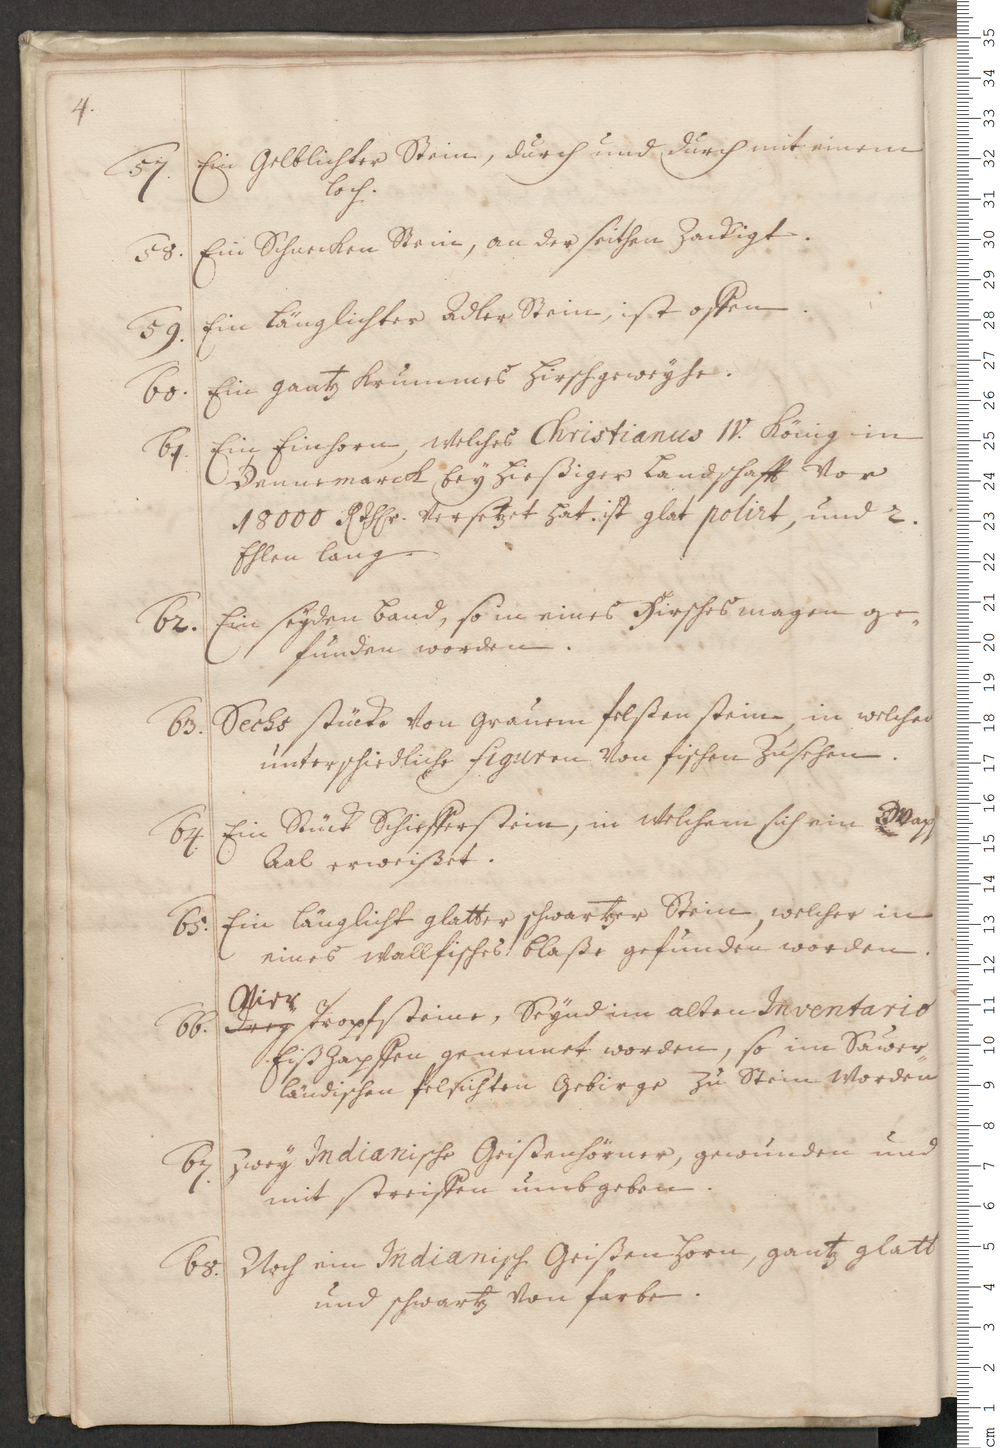 4.
57. Ein Gelblichter Stein, durch und durch mit einem
loch.
58. Ein Schnecken Stein, an der seithen Zackigt.
59. Ein länglichter Adler Stein, ist offen.
60. Ein gantz krummes Hirschgeweyhe.
61. Ein Einhorn, welches Christianus IV. König in
Dennemarck bey hießiger Landschafft vor
18000 Rthlr. versetzet hat. ist glat polirt, und 2.
Ehlen lang
62. Ein seyden band, so in eines Hirsches magen ge-
funden worden.
63. Sechs stücke von grauem felßen stein, in welchen
unterschiedliche figuren von fischen Zusehen.
64. Ein Stück Schiefferstein, in welchem sich ein
Aal erweißet.
65. Ein länglicht glatter schwartzer Stein, welcher in
eines wallfisches blaße gefunden worden.
Vier
66. Drey Tropfsteine, Seynd im alten Inventario
Eißzapffen genennet worden, so im Sauer-
ländischen felsichten Gebirge zu Stein worden
67. Zwey Indianische Geißenhörner, gewunden und
mit streiffen umbgeben.
68. Noch ein Indianisch Geißen horn, gantz glatt
und schwartz von farbe.
35
34
33
32
31
30
29
28
27
26
25
24
23
22
21
20
19
18
17
16
15
14
13
12
11
10
9
8
7
6
5
4
3
2
1
cm